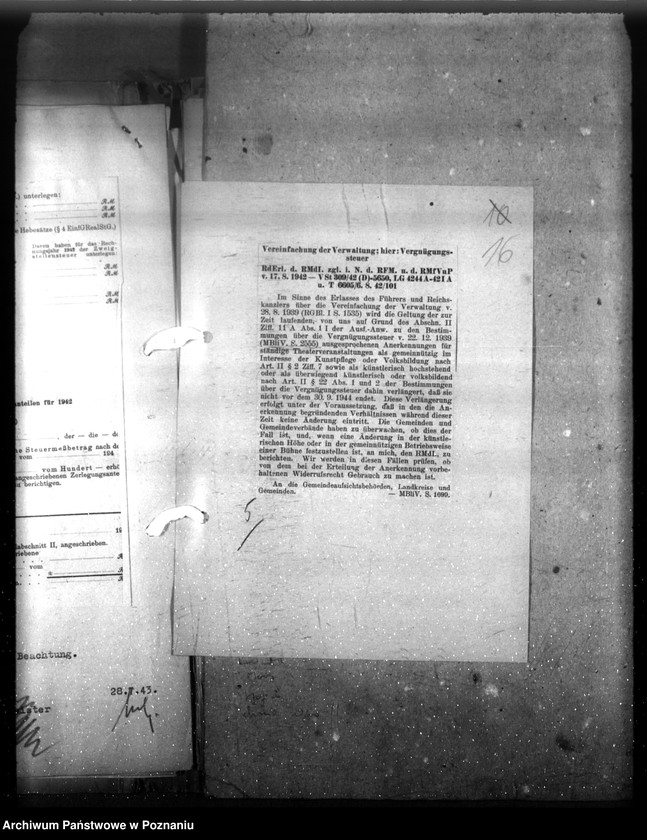 .) unterlegen:
RM
RM
RM
e Hebesätze (§ 4 EinfGRealStG.)
Davon haben für das Rech-
nungsjahr 1942 der Zweig-
stellensteuer unterlegen:
RM
RM
RM
RM
anteilen für 1942
, der — die — d
he Steuermeßbetrag nach d
vom 194
vom Hundert — erhö
angeschriebenen Zerlegungsante
berichtigen.
19
abschnitt II, angeschrieben.
riebene
vom
Beachtung.
28.7.43.
ister
10
16
Vereinfachung der Verwaltung; hier: Vergnügungs-
steuer
RdErl. d. RMdI. zgl. i. N. d. RFM. u. d. RMfVuP
v. 17. 8. 1942 — V St 309/42 (D)-5650, LG 4244 A-42 I A
u. T 6605/6. 8. 42/101
Im Sinne des Erlasses des Führers und Reichs-
kanzlers über die Vereinfachung der Verwaltung v.
28. 8. 1939 (RGBl. I S. 1535) wird die Geltung der zur
Zeit laufenden, von uns auf Grund des Abschn. II
Ziff. 11 A Abs. 1 I der Ausf.-Anw. zu den Bestim-
mungen über die Vergnügungssteuer v. 22. 12. 1939
(MBliV. S. 2555) ausgesprochenen Anerkennungen für
ständige Theaterveranstaltungen als gemeinnützig im
Interesse der Kunstpflege oder Volksbildung nach
Art. II § 2 Ziff. 7 sowie als künstlerisch hochstehend
oder als überwiegend künstlerisch oder volksbildend
nach Art. II § 22 Abs. 1 und 2 der Bestimmungen
über die Vergnügungssteuer dahin verlängert, daß sie
nicht vor dem 30. 9. 1944 endet. Diese Verlängerung
erfolgt unter der Voraussetzung, daß in den die An-
erkennung begründenden Verhältnissen während dieser
Zeit keine Änderung eintritt. Die Gemeinden und
Gemeindeverbände haben zu überwachen, ob dies der
Fall ist, und, wenn eine Änderung in der künstle-
rischen Höhe oder in der gemeinnützigen Betriebsweise
einer Bühne festzustellen ist, an mich, den RMdI., zu
berichten. Wir werden in diesen Fällen prüfen, ob
von dem bei der Erteilung der Anerkennung vorbe-
haltenen Widerrufsrecht Gebrauch zu machen ist.
An die Gemeindeaufsichtsbehörden, Landkreise und
Gemeinden. — MBliV. S. 1699.
5/
Archiwum Państwowe w Poznaniu